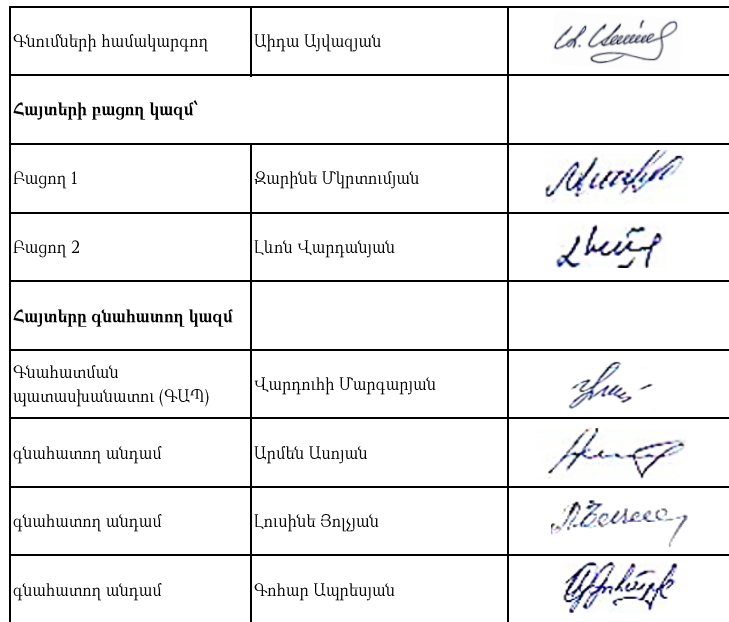 Գնումների համակարգող Աիդա Այվազյան
Հայտերի բացող կազմ՝
Բացող 1 Զարինե Մկրտումյան
Բացող 2 Լևոն Վարդանյան
Հայտերը գնահատող կազմ
Գնահատման
պատասխանատու (ԳԱՊ) Վարդուհի Մարգարյան
գնահատող անդամ Արմեն Ասոյան
գնահատող անդամ Լուսինե Յոլչյան
գնահատող անդամ Գոհար Ապրեսյան